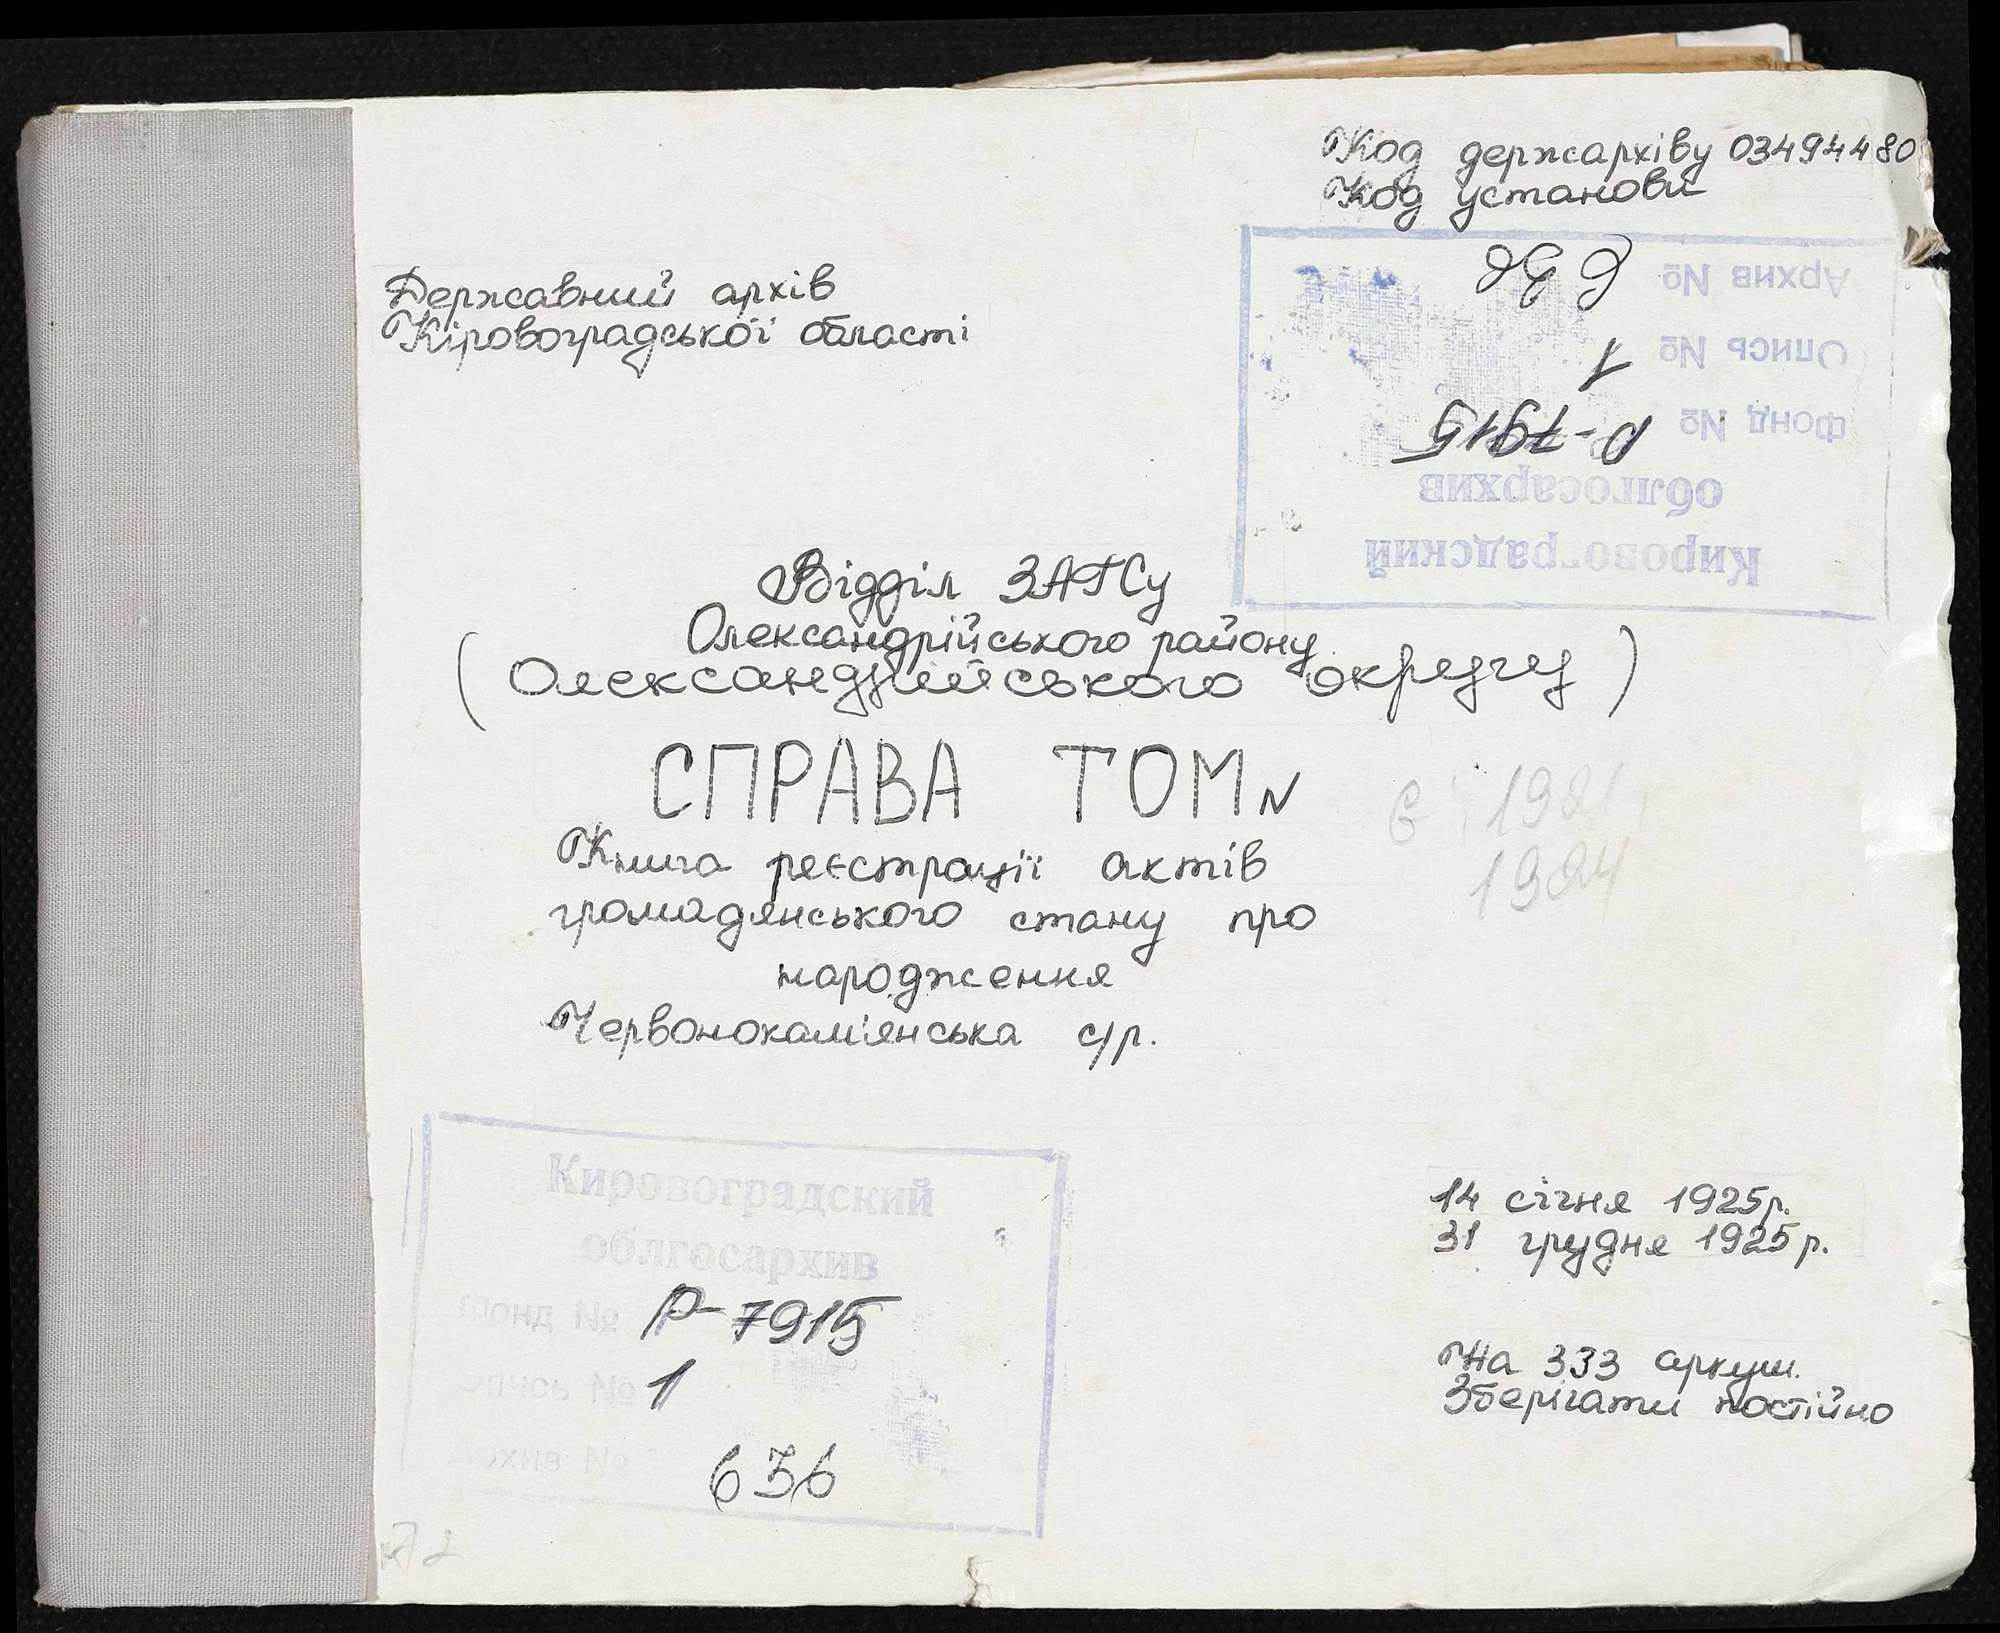 Код держархіву 03494480
Код установи
Державний архів
Кіровоградської області
Кировоградский
облгосархив
Фонд № Р-7915
Опись № 1
Архив № 636
Відділ ЗАГСу
Олександрійського району
(Олександрійського округу)
СПРАВА ТОМ N
Книга реєстрації актів
громадянського стану про
народження
Червонокам'янська с/р.
є 1921
1924
14 січня 1925р.
31 грудня 1925р.
На 333 аркуш.
Зберігати постійно
Кировоградский
облгосархив
Фонд № Р-7915
опись № 1
Архив № 636
72